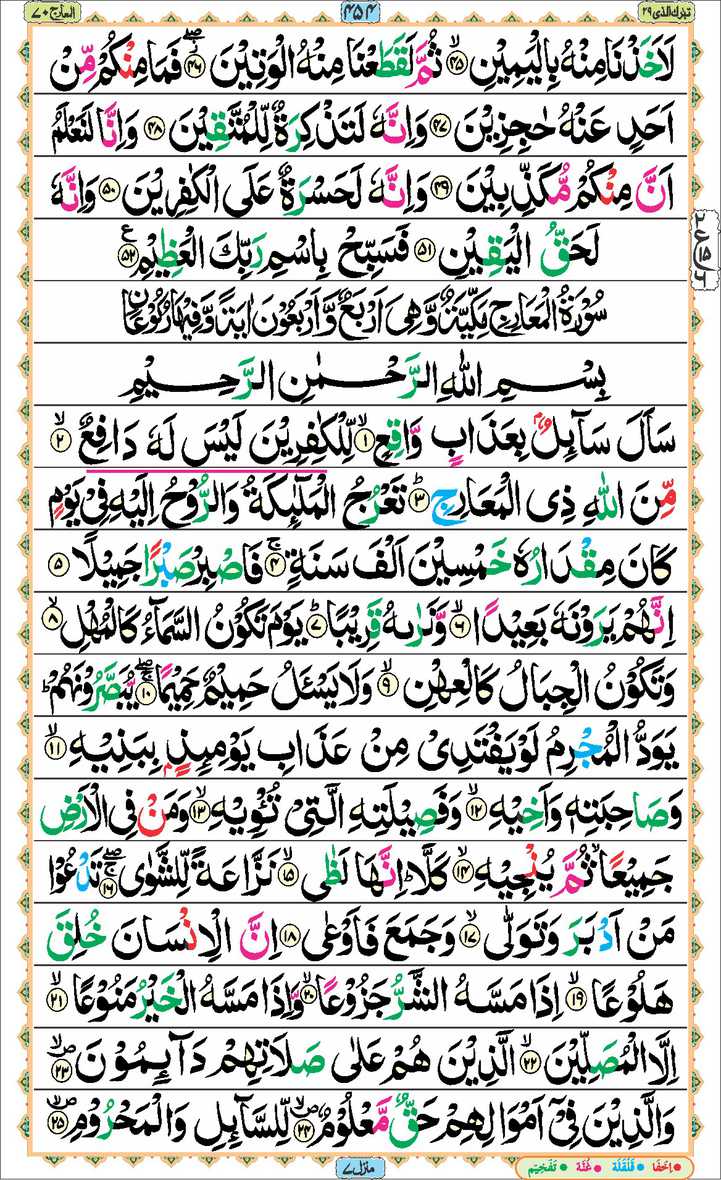 تبٰرك الذی ۲۹
۴۵۴
المعارج ۷۰
لَاَخَذْنَا مِنْهُ بِالْيَمِيْنِ ۙ﴿۴۵﴾ ثُمَّ لَقَطَعْنَا مِنْهُ الْوَتِيْنَ ۖ﴿۴۶﴾ فَمَا مِنْكُمْ مِّنْ
اَحَدٍ عَنْهُ حٰجِزِيْنَ ﴿۴۷﴾ وَاِنَّهٗ لَتَذْكِرَةٌ لِّلْمُتَّقِيْنَ ﴿۴۸﴾ وَاِنَّا لَنَعْلَمُ
اَنَّ مِنْكُمْ مُّكَذِّبِيْنَ ﴿۴۹﴾ وَاِنَّهٗ لَحَسْرَةٌ عَلَى الْكٰفِرِيْنَ ﴿۵۰﴾ وَاِنَّهٗ
لَحَقُّ الْيَقِيْنِ ﴿۵۱﴾ فَسَبِّحْ بِاسْمِ رَبِّكَ الْعَظِيْمِ ﴿۵۲﴾ ع
سُوْرَةُ الْمَعَارِجِ مَكِّيَّةٌ وَّهِىَ اَرْبَعٌ وَّاَرْبَعُوْنَ اٰيَةً وَّفِيْهَا رُكُوْعَانِ
بِسْمِ اللهِ الرَّحْمٰنِ الرَّحِيْمِ
سَاَلَ سَآئِلٌۢ بِعَذَابٍ وَّاقِعٍ ۙ﴿۱﴾ لِّلْكٰفِرِيْنَ لَيْسَ لَهٗ دَافِعٌ ۙ﴿۲﴾
مِّنَ اللهِ ذِى الْمَعَارِجِ ؕ﴿۳﴾ تَعْرُجُ الْمَلٰٓئِكَةُ وَالرُّوْحُ اِلَيْهِ فِىْ يَوْمٍ
كَانَ مِقْدَارُهٗ خَمْسِيْنَ اَلْفَ سَنَةٍ ۚ﴿۴﴾ فَاصْبِرْ صَبْرًا جَمِيْلًا ﴿۵﴾
اِنَّهُمْ يَرَوْنَهٗ بَعِيْدًا ۙ﴿۶﴾ وَّنَرٰىهُ قَرِيْبًا ؕ﴿۷﴾ يَوْمَ تَكُوْنُ السَّمَآءُ كَالْمُهْلِ ۙ﴿۸﴾
وَتَكُوْنُ الْجِبَالُ كَالْعِهْنِ ۙ﴿۹﴾ وَلَا يَسْئَلُ حَمِيْمٌ حَمِيْمًا ۖۚ﴿۱۰﴾ يُّبَصَّرُوْنَهُمْ ؕ
يَوَدُّ الْمُجْرِمُ لَوْ يَفْتَدِىْ مِنْ عَذَابِ يَوْمِئِذٍۢ بِبَنِيْهِ ۙ﴿۱۱﴾
وَصَاحِبَتِهٖ وَاَخِيْهِ ۙ﴿۱۲﴾ وَفَصِيْلَتِهِ الَّتِىْ تُـــْٔوِيْهِ ۙ﴿۱۳﴾ وَمَنْ فِى الْاَرْضِ
جَمِيْعًا ۙ ثُمَّ يُنْجِيْهِ ۙ﴿۱۴﴾ كَلَّا ؕ اِنَّهَا لَظٰى ۙ﴿۱۵﴾ نَزَّاعَةً لِّلشَّوٰى ۖۚ﴿۱۶﴾ تَدْعُوْا
مَنْ اَدْبَرَ وَتَوَلّٰى ۙ﴿۱۷﴾ وَجَمَعَ فَاَوْعٰى ﴿۱۸﴾ اِنَّ الْاِنْسَانَ خُلِقَ
هَلُوْعًا ۙ﴿۱۹﴾ اِذَا مَسَّهُ الشَّرُّ جَزُوْعًا ۙ﴿۲۰﴾ وَّاِذَا مَسَّهُ الْخَيْرُ مَنُوْعًا ۙ﴿۲۱﴾
اِلَّا الْمُصَلِّيْنَ ۙ﴿۲۲﴾ الَّذِيْنَ هُمْ عَلٰى صَلَاتِهِمْ دَآئِمُوْنَ ۪ۙ﴿۲۳﴾
وَالَّذِيْنَ فِىْٓ اَمْوَالِهِمْ حَقٌّ مَّعْلُوْمٌ ۪ۙ﴿۲۴﴾ لِّلسَّآئِلِ وَالْمَحْرُوْمِ ۪ۙ﴿۲۵﴾
ع ۱۵
منزل ۷
اِخفا قَلْقَلَه غُنَّه تَفخِیم